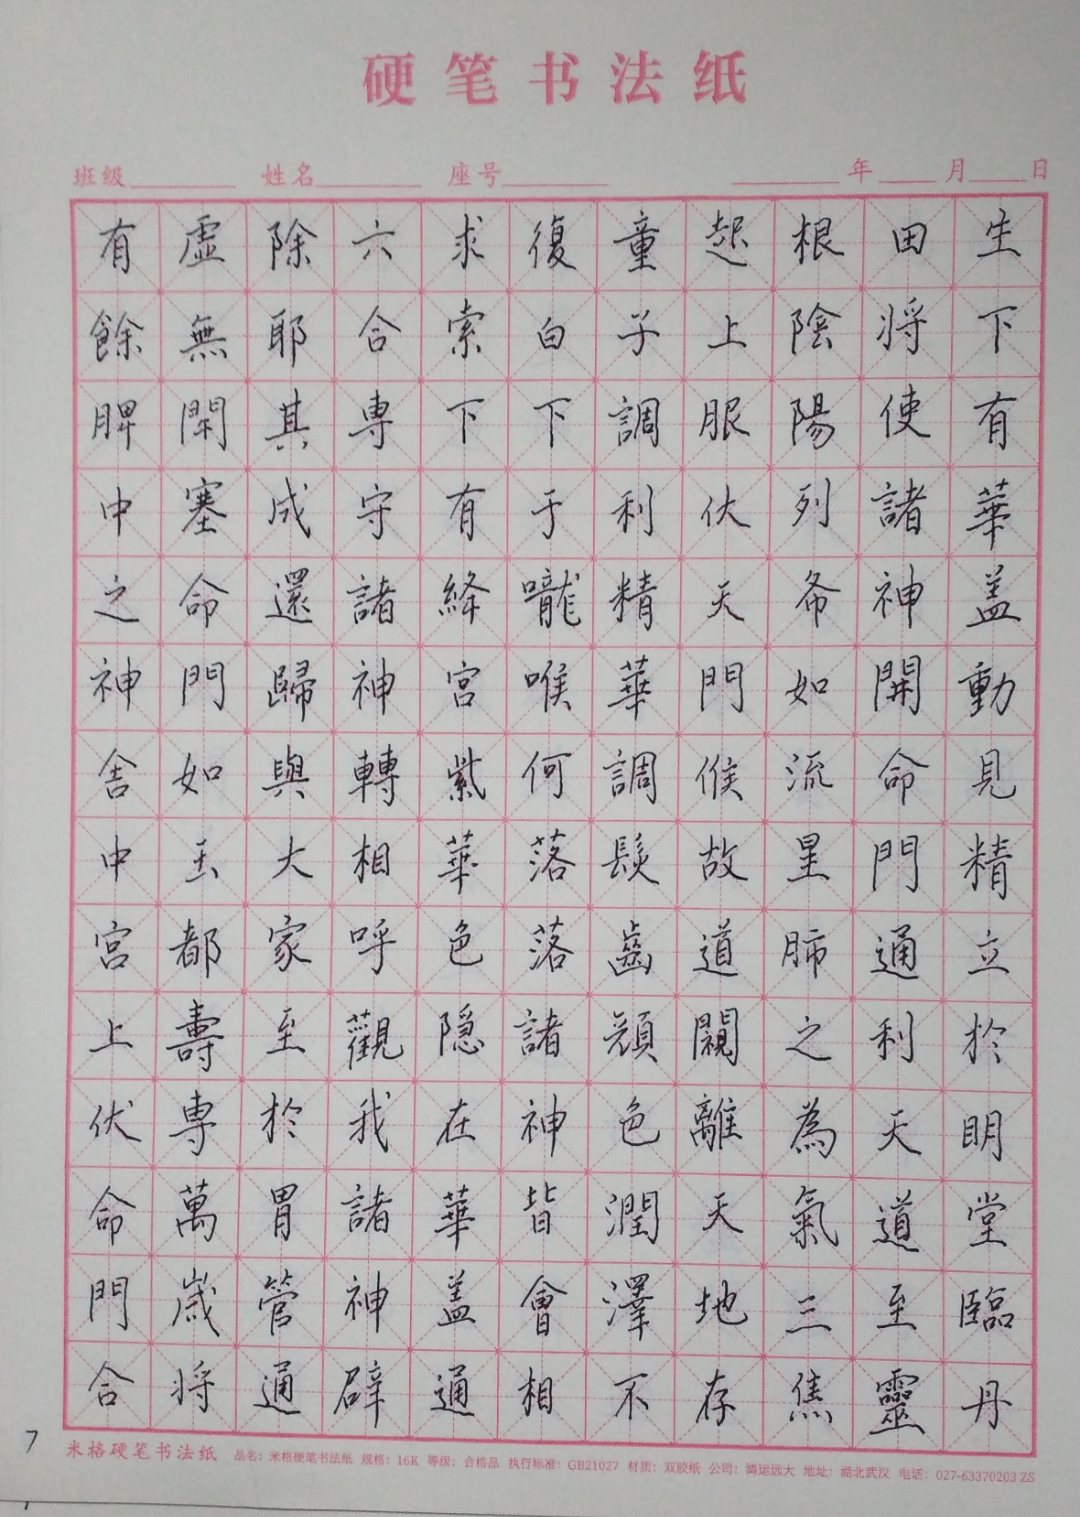 硬笔书法纸
班级 姓名 座号 年 月 日
生下有華盖動見精立於明堂臨丹
田將使諸神開命門通利天道至靈
根陰陽列布如流星肺之為氣三焦
起上服伏天門候故道闚離天地存
童子調利精華調髮齒顔色潤澤不
復白下于嚨喉何落落諸神皆會相
求索下有絳宮紫華色隐在華盖通
六合專守諸神轉相呼觀我諸神辟
除耶其成還歸與大家至於胃管通
虛無閉塞命門如玉都壽專萬歲將
有餘脾中之神舍中宮上伏命門合
7
米格硬笔书法纸 品名：米格硬笔书法纸 规格：16K 等级：合格品 执行标准：GB21027 材质：双胶纸 公司：鸿运远大 地址：湖北武汉 电话：027-63370203 ZS